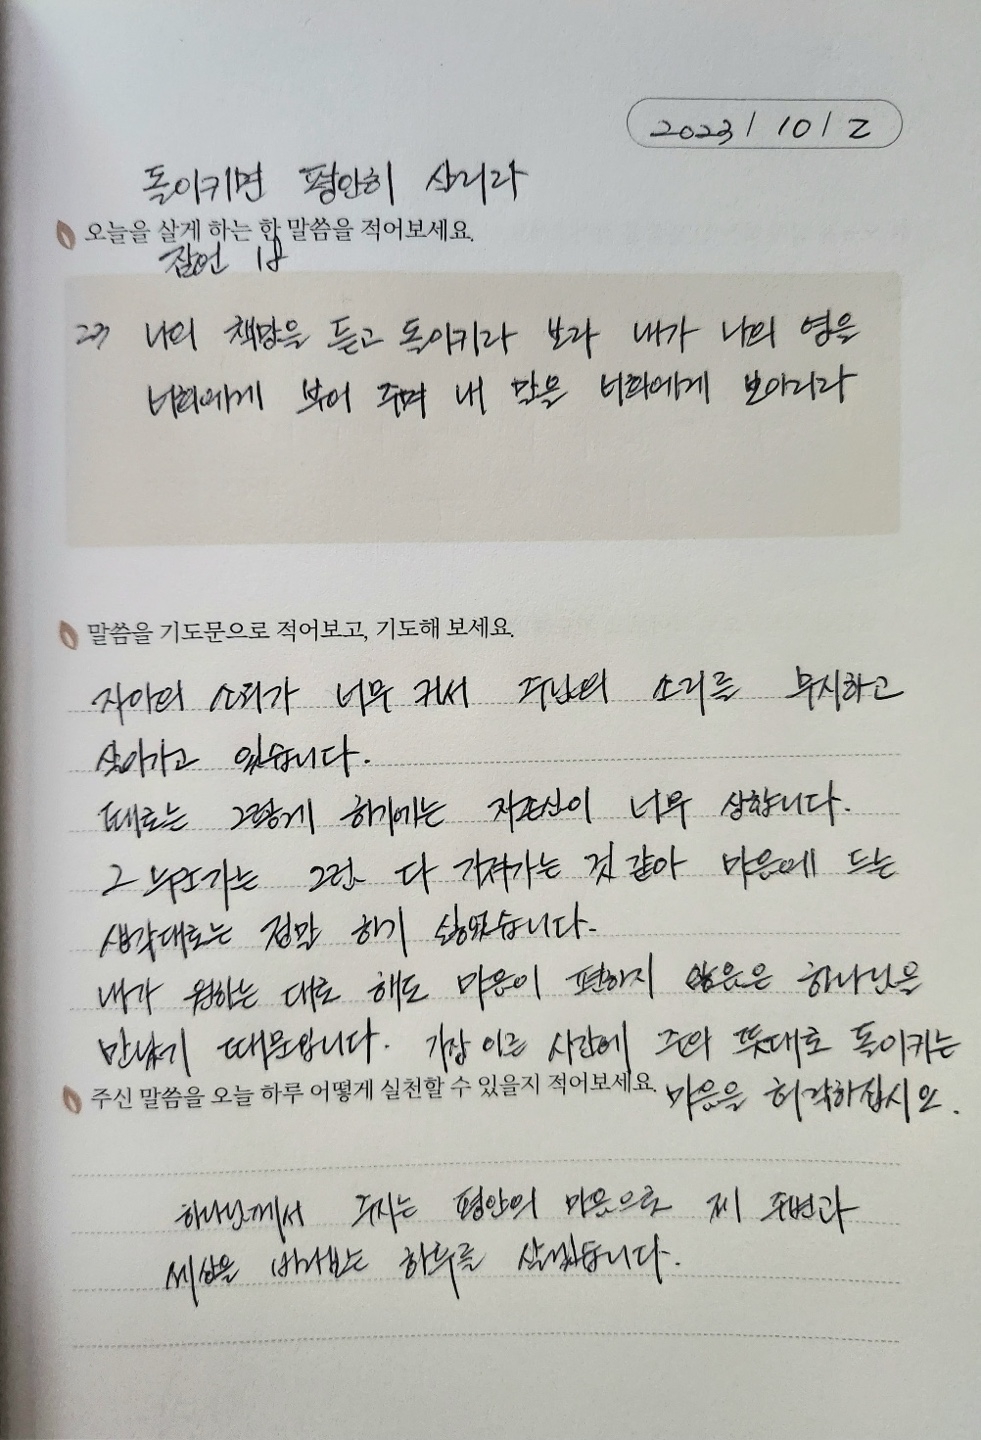 2023 / 10 / 2
돌이키면 평안히 살리라
오늘을 살게 하는 한 말씀을 적어보세요.
잠언 1장
23 나의 책망을 듣고 돌이키라 보라 내가 나의 영을
너희에게 부어 주며 내 말을 너희에게 보이리라
말씀을 기도문으로 적어보고, 기도해 보세요.
자아의 소리가 너무 커서 주님의 소리를 무시하고
살아가고 있습니다.
때로는 그렇게 하기에는 자존심이 너무 상합니다.
그 누군가는 그런 다 가져가는 것 같아 마음에 드는
생각대로는 정말 하기 싫었습니다.
내가 원하는 대로 해도 마음이 편하지 않음은 하나님을
만났기 때문입니다. 가장 이른 시간에 주의 뜻대로 돌이키는
마음을 허락하십시오.
주신 말씀을 오늘 하루 어떻게 실천할 수 있을지 적어보세요.
하나님께서 주시는 평안의 마음으로 제 주변과
세상을 바라보는 하루를 살겠습니다.